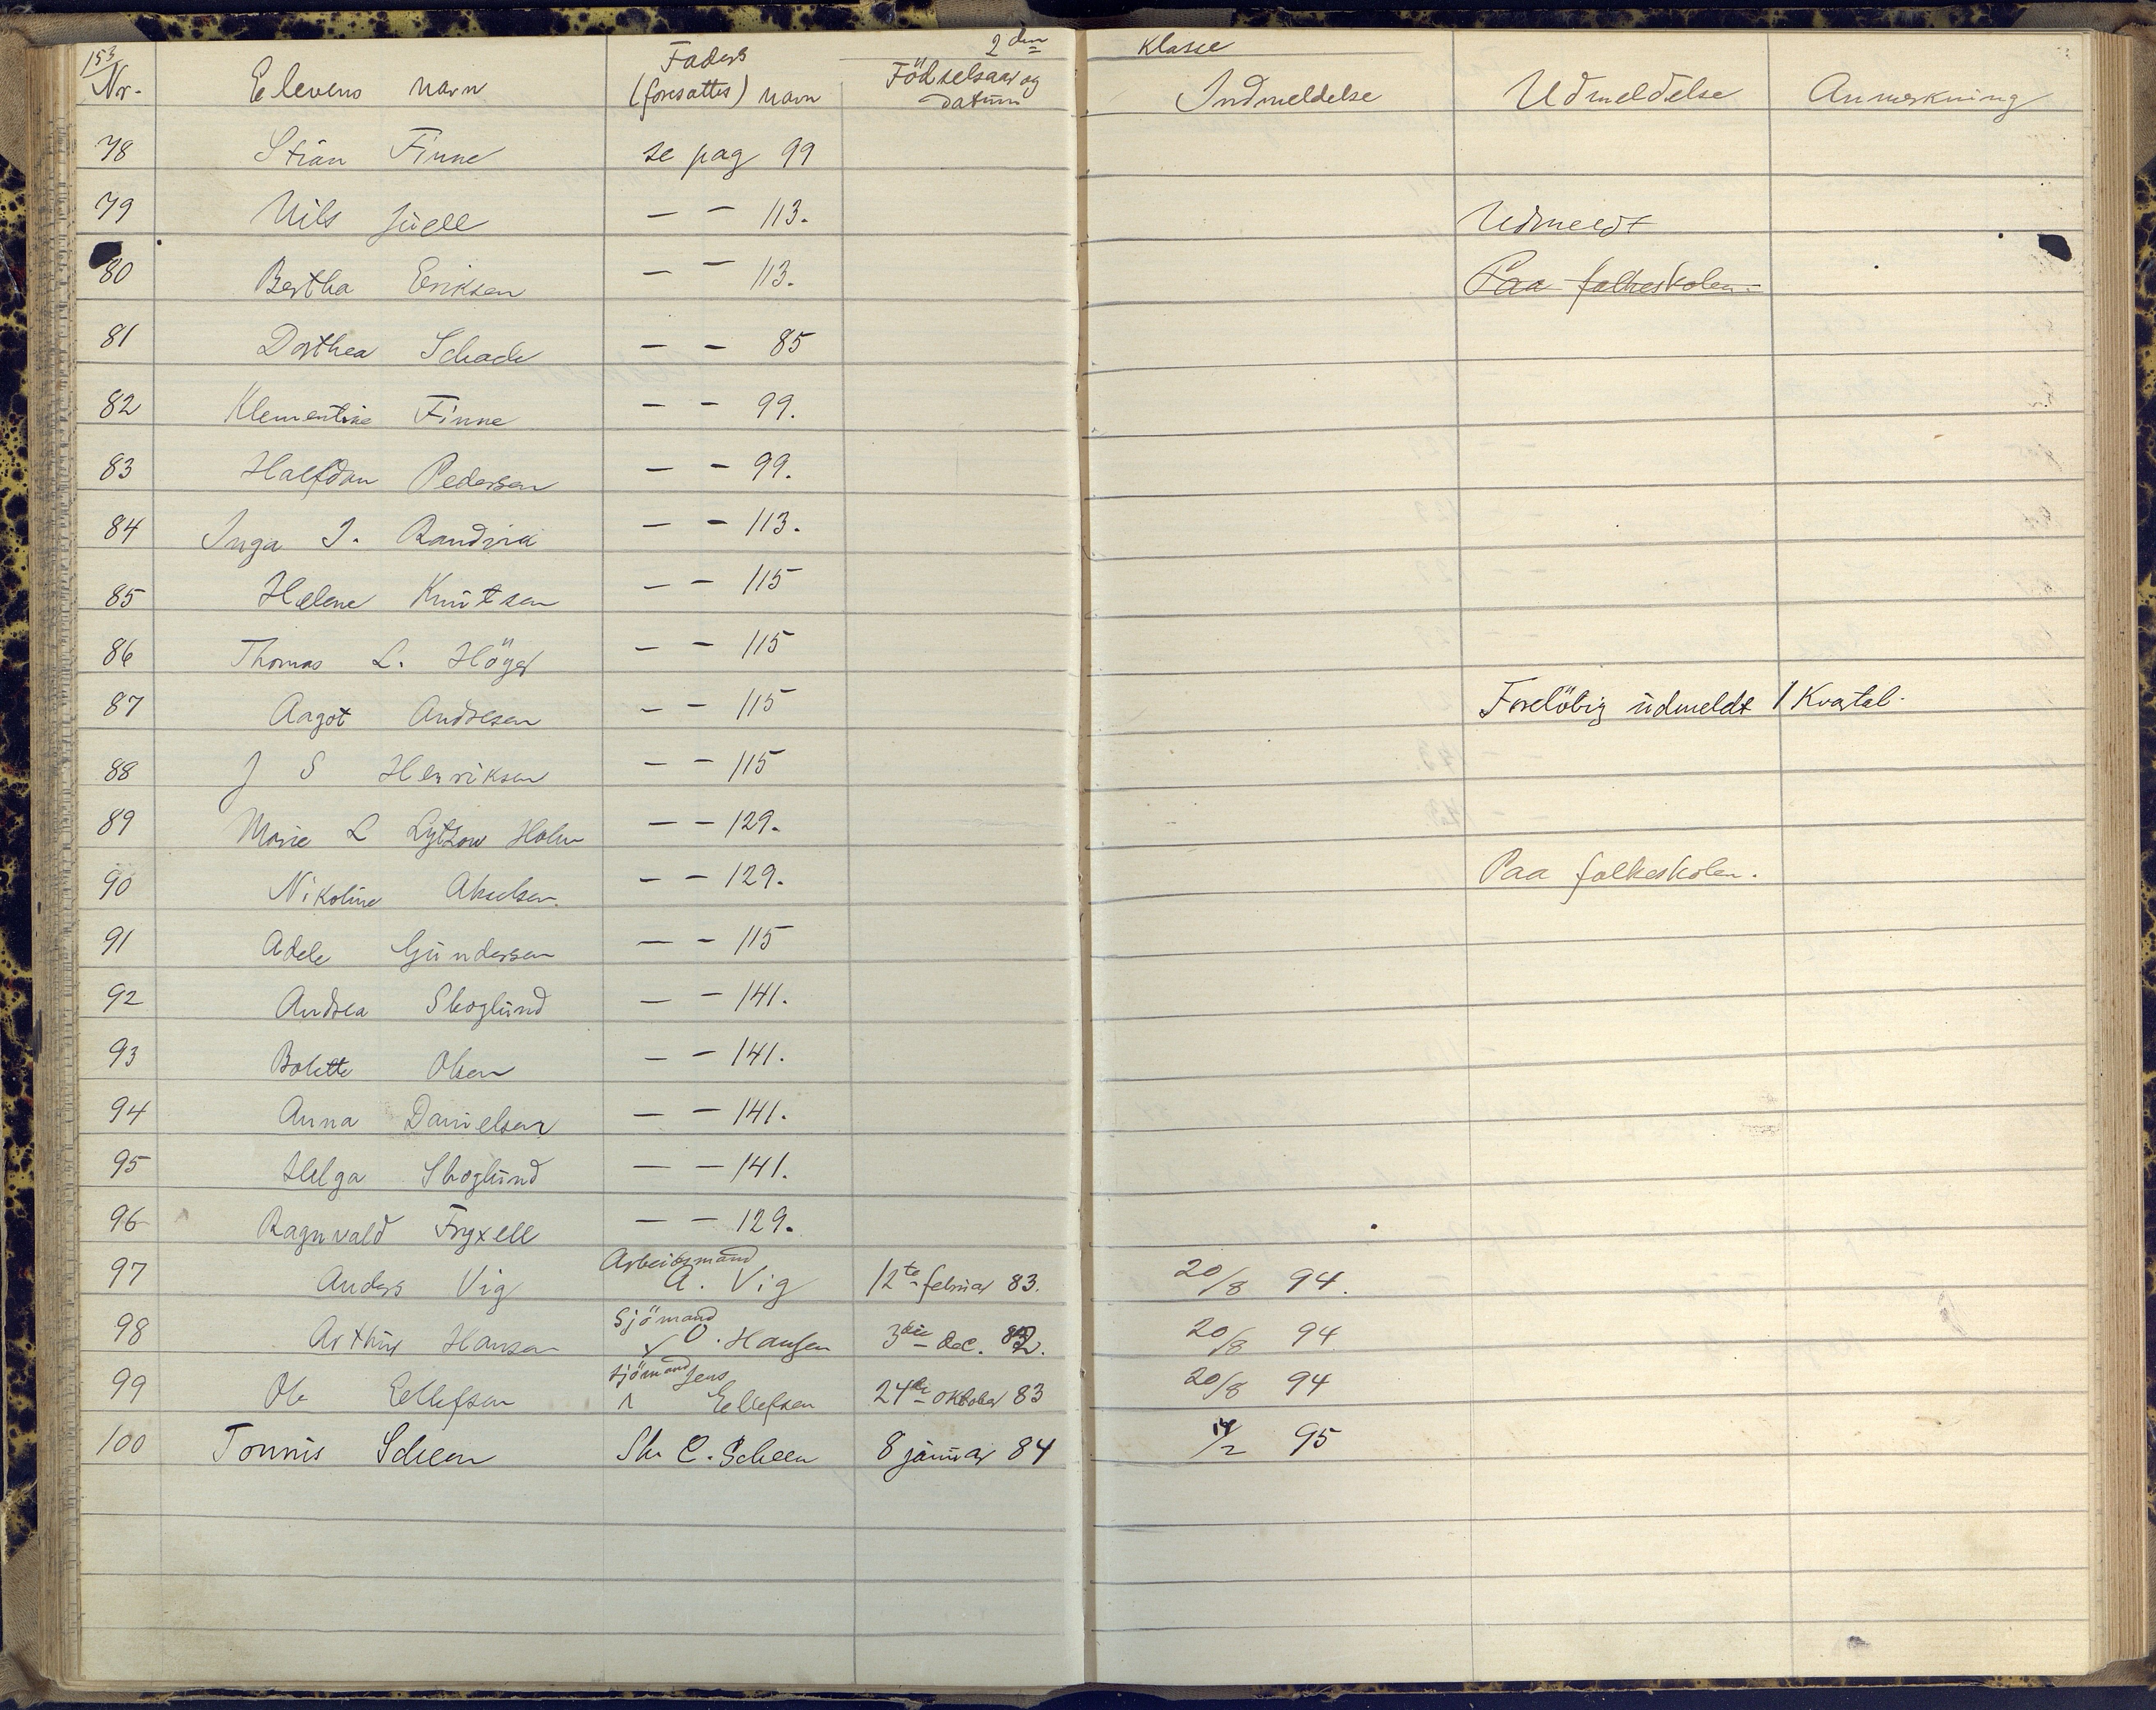 153
2den Klasse
Nr. Elevens navn Faders (foresattes) navn Födselsaar og datum Indmeldelse Udmeldelse Anmerkning
78 Stian Finne se pag 99
79 Nils Juell — — 113. Udmeldt
80 Bertha Eriksen — — 113. Paa folkeskolen.
81 Dorthea Schade — — 85
82 Klementine Finne — — 99.
83 Halfdan Pedersen — — 99.
84 Inga J. Randvik — — 113.
85 Helene Knutsen — — 115
86 Thomas L. Höyer — — 115
87 Aagot Andresen — — 115 Forelöbig udmeldt 1 Kvartal.
88 J S Henriksen — — 115
89 Marie L Lytzow Holm — — 129.
90 Nikoline Akselsen — — 129. Paa folkeskolen.
91 Adele Gundersen — — 115
92 Andrea Skoglund — — 141.
93 Bolette Olsen — — 141.
94 Anna Danielsen — — 141.
95 Helga Skoglund — — 141.
96 Ragnvald Fryxell — — 129.
97 Anders Vig Arbeidsmand A. Vig 12te februar 83. 20/8 94.
98 Arthur Hansen Sjömand O. Hansen 3die dec. 82. 20/8 94
99 Ole Ellefsen Sjömand Jens Ellefsen 24de oktober 83 20/8 94
100 Tonnis Scheen Sk. C. Scheen 8 januar 84 14/2 95